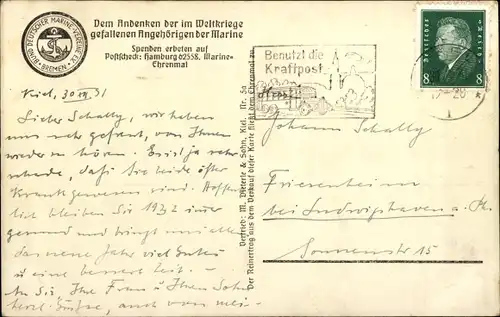 BUND DEUTSCHER MARINE-VEREINE
BREMEN
Dem Andenken der im Weltkriege
gefallenen Angehörigen der Marine
Spenden erbeten auf
Postscheck: Hamburg 62558, Marine-
Ehrenmal
Benutzt die
Kraftpost
Deutsches Reich
8 8
17-20
Kiel, 30 XII. 31
Lieber Schally, wir haben
uns sehr gefreut, von Ihnen
wieder zu hören. Es ist ja sehr
schade, daß Sie beide öfter
krank gewesen sind. Hoffent
lich bleiben Sie 1932 immer
gesund und bringt uns allen
das neue Jahr viel Gutes
u eine bessere Zeit. –
An Sie, Ihre Frau u Ihren Sohn
herzl. Grüße, auch von mei-
Vertrieb: M. Dieterle & Sohn, Kiel. Nr. 5a
Der Reinertrag aus dem Verkauf dieser Karte fließt dem Ehrenmal zu
Johann Schally
Friesenheim
bei Ludwigshafen a. Rh.
Sonnenstr 15